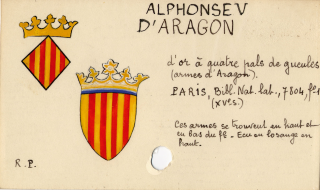 ALPHONSE V
D'ARAGON
d'or à quatre pals de gueules
(armes d'Aragon).
PARIS, Bibl. Nat. lat., 7804, fº1
(XVe s.)
Ces armes se trouvent en haut et
en bas du fº - Ecu en losange en
haut.
R.P.